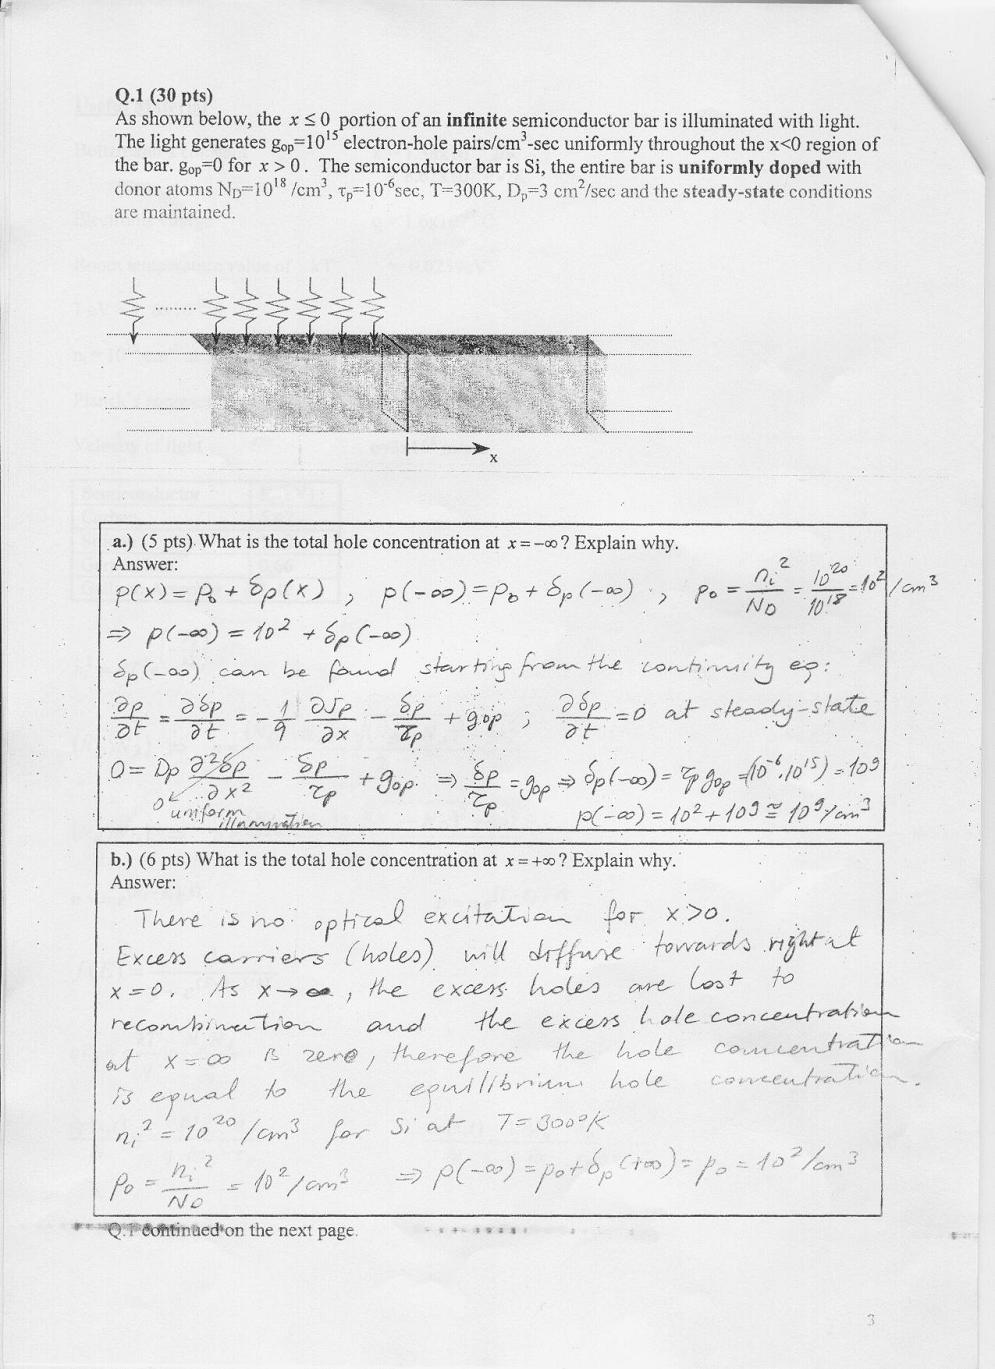 Q.1 (30 pts)
As shown below, the x ≤ 0 portion of an infinite semiconductor bar is illuminated with light.
The light generates gop=10^15 electron-hole pairs/cm^3-sec uniformly throughout the x<0 region of
the bar. gop=0 for x > 0. The semiconductor bar is Si, the entire bar is uniformly doped with
donor atoms ND=10^18 /cm^3, τp=10^-6 sec, T=300K, Dp=3 cm^2/sec and the steady-state conditions
are maintained.
x
a.) (5 pts) What is the total hole concentration at x = -∞? Explain why.
Answer:
p(x) = p0 + δp(x) , p(-∞) = p0 + δp(-∞) , p0 = ni^2/ND = 10^20/10^18 = 10^2/cm^3
⇒ p(-∞) = 10^2 + δp(-∞)
δp(-∞) can be found starting from the continuity eq:
∂p/∂t = ∂δp/∂t = -1/q ∂Jp/∂x - δp/τp + gop ; ∂δp/∂t = 0 at steady-state
0 = Dp ∂^2δp/∂x^2 - δp/τp + gop ⇒ δp/τp = gop ⇒ δp(-∞) = τp gop = (10^-6 . 10^15) = 10^9
0 uniform illumination
p(-∞) = 10^2 + 10^9 ≅ 10^9/cm^3
b.) (6 pts) What is the total hole concentration at x = +∞? Explain why.
Answer:
There is no optical excitation for x>0.
Excess carriers (holes) will diffuse towards right at
x=0. As x→∞, the excess holes are lost to
recombination and the excess hole concentration
at x=∞ is zero, therefore the hole concentration
is equal to the equilibrium hole concentration.
ni^2 = 10^20 /cm^3 for Si at T=300°K
p0 = ni^2/ND = 10^2/cm^3 ⇒ p(-∞) = p0 + δp(+∞) = p0 = 10^2/cm^3
Q.1 continued on the next page.
3